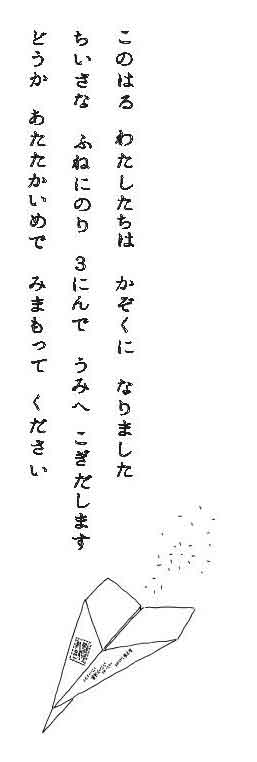 このはる わたしたちは かぞくに なりました
ちいさな ふねにのり 3にんで うみへ こぎだします
どうか あたたかいめで みまもって ください